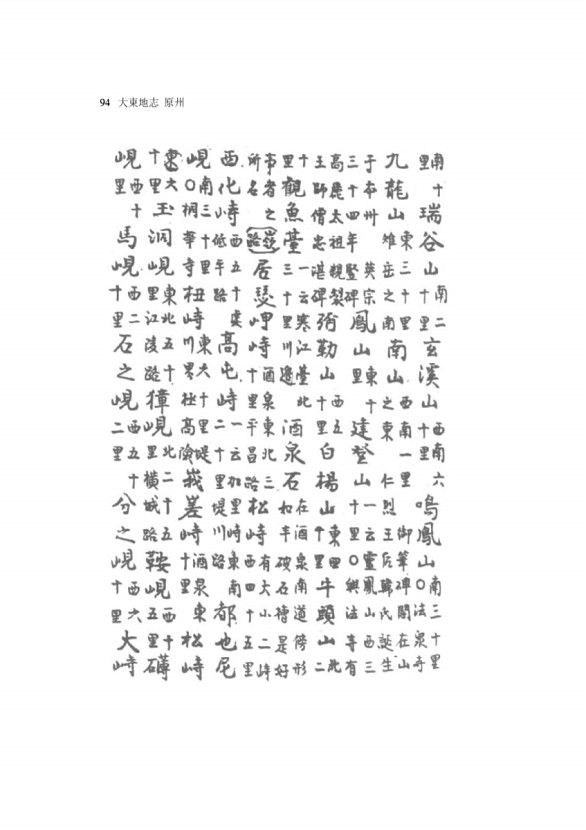 94 大東地志 原州
南十里瑞谷山南二十里玄溪山西南六十里鳴鳳山南三十里○法泉寺
九龍山東三十里雉岳之南南山西南一里之東仁烈王后韓氏誕生御筆碑閣在山
于本州英宗三十四年竪碑鳳山東十里建登山一云靈鳳山西三十里○興法寺有
高麗太祖親製碑王師僧忠湛碑弥勒山西五十里白楊山東十里牛頭山北二
十里觀魚臺一云寒江臺北三十里川邊酒泉石在酒泉南道傍形如半破石槽是好
事者之所名嶺路居瑟岬峙酒泉東北三十里平昌路松峙有大小二峙西四十五里
西化峙西五十里低平路高屯峙一云加里峙東南二十里堤川路都也尼
峴南三十里○桐華寺杻峙東大十里堤川界極高險峩嵳峙酒泉東十里松峙
東大十里玉洞峴東北五十里江陵路獐峴北二十五里橫城路鞍峴西十五里礴
峴西十里馬峴西二十里石之峴西五十二里分之峴西六十里大峙